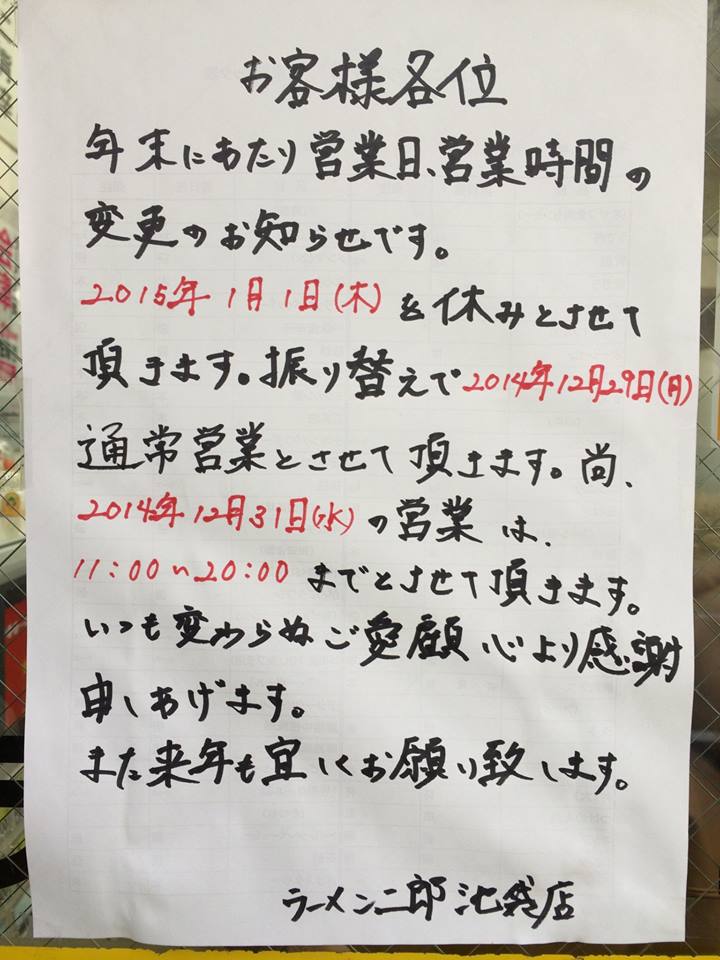 お客様各位
年末にあたり営業日、営業時間の
変更のお知らせです。
2015年1月1日(木)を休みとさせて
頂きます。振り替えで2014年12月29日(月)
通常営業とさせて頂きます。尚、
2014年12月31日(水)の営業は、
11:00〜20:00までとさせて頂きます。
いつも変わらぬご愛顧心より感謝
申しあげます。
また来年も宜しくお願い致します。
ラーメン二郎池袋店